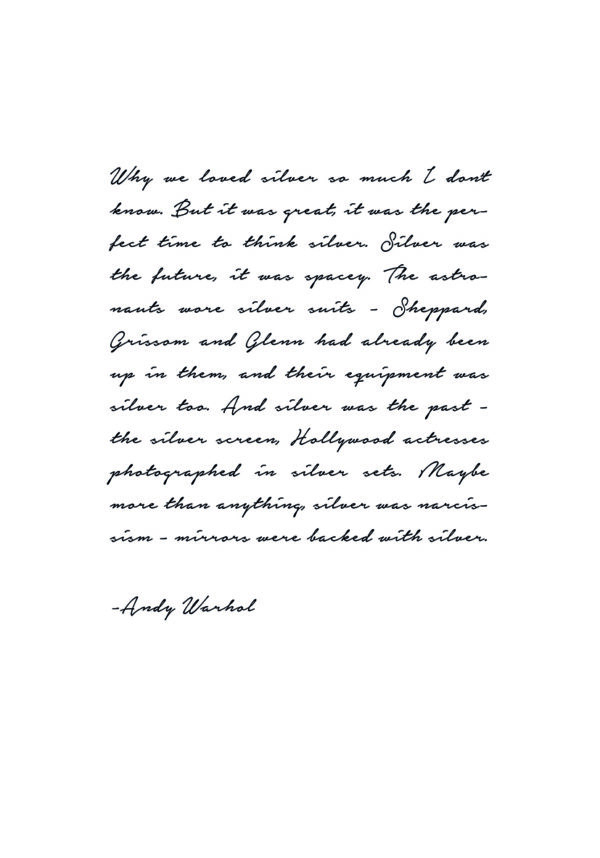 Why we loved silver so much I don't
know. But it was great, it was the per-
fect time to think silver. Silver was
the future, it was spacey. The astro-
nauts wore silver suits - Sheppard,
Grissom and Glenn had already been
up in them, and their equipment was
silver too. And silver was the past -
the silver screen, Hollywood actresses
photographed in silver sets. Maybe
more than anything, silver was narcis-
sism - mirrors were backed with silver.
-Andy Warhol